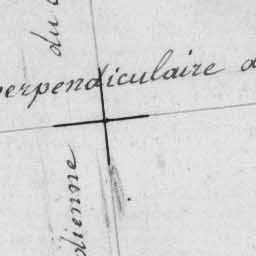 perpendiculaire
du
dienne